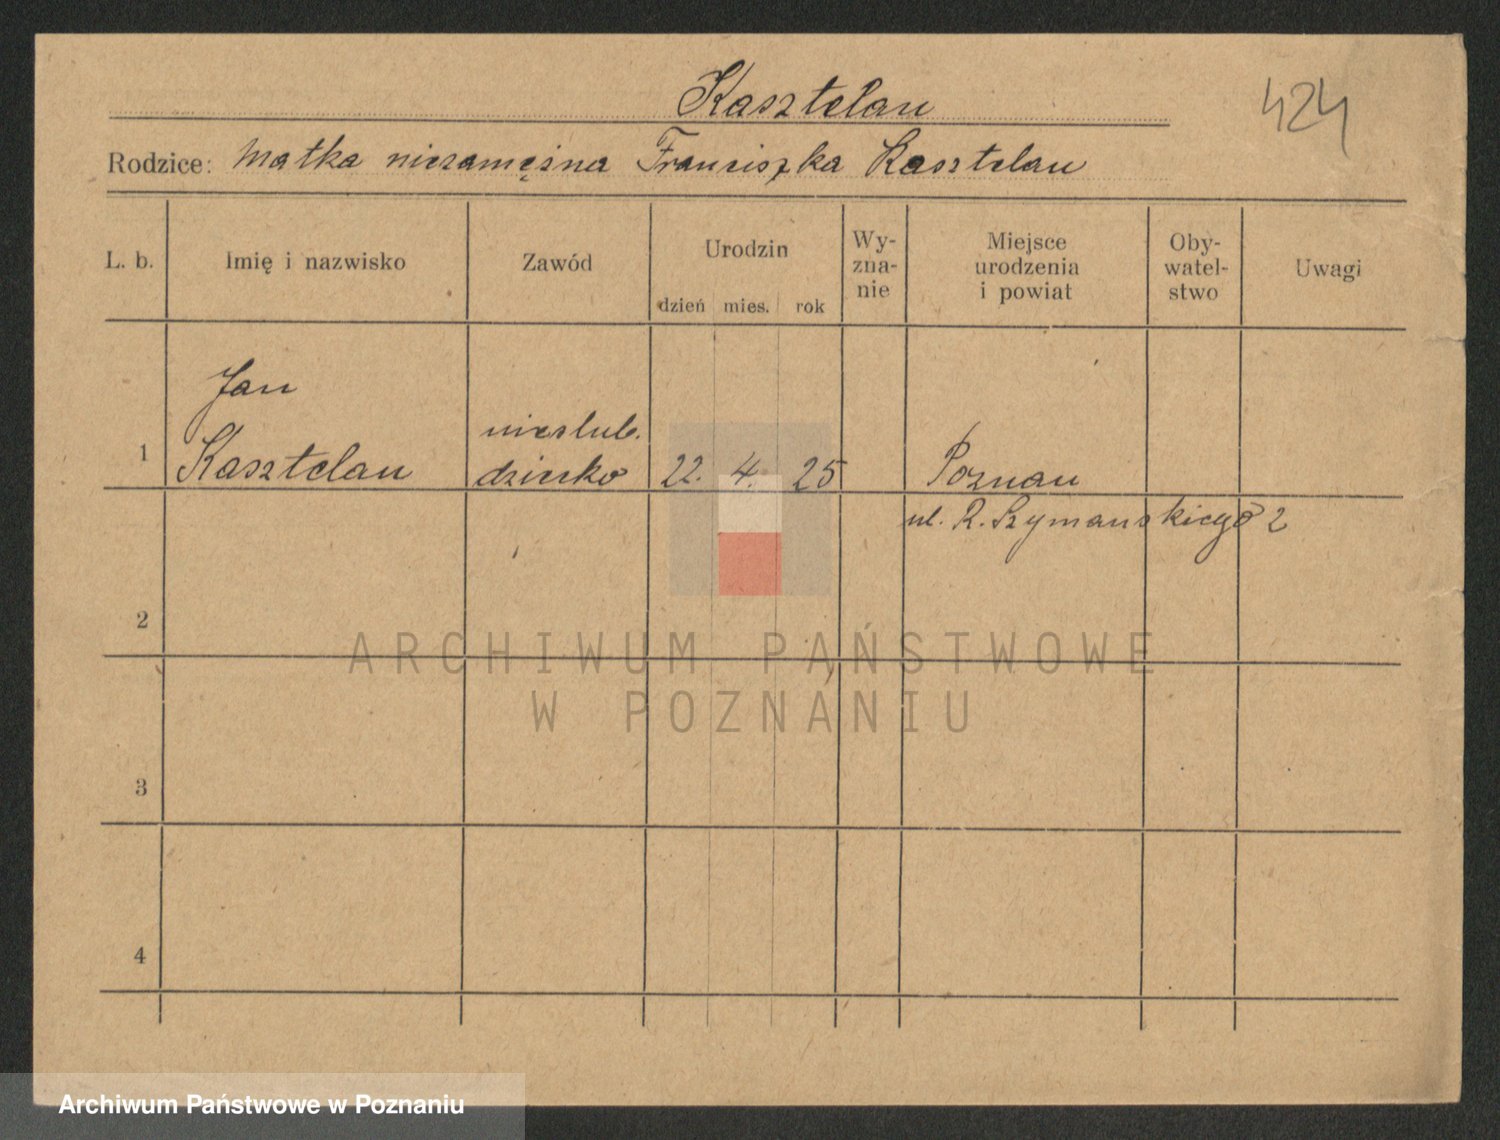 Kasztelan
424
Rodzice: Matka niezamężna Franciszka Kasztelan
L. b. Imię i nazwisko Zawód Urodzin dzień mies. rok Wy-zna-nie Miejsce urodzenia i powiat Oby-watel-stwo Uwagi
Jan
nieślub.
1 Kasztelan dziecko 22. 4. 25 Poznan
ul. R. Szymańskiego 2
2
ARCHIWUM PAŃSTWOWE
W POZNANIU
3
4
Archiwum Państwowe w Poznaniu